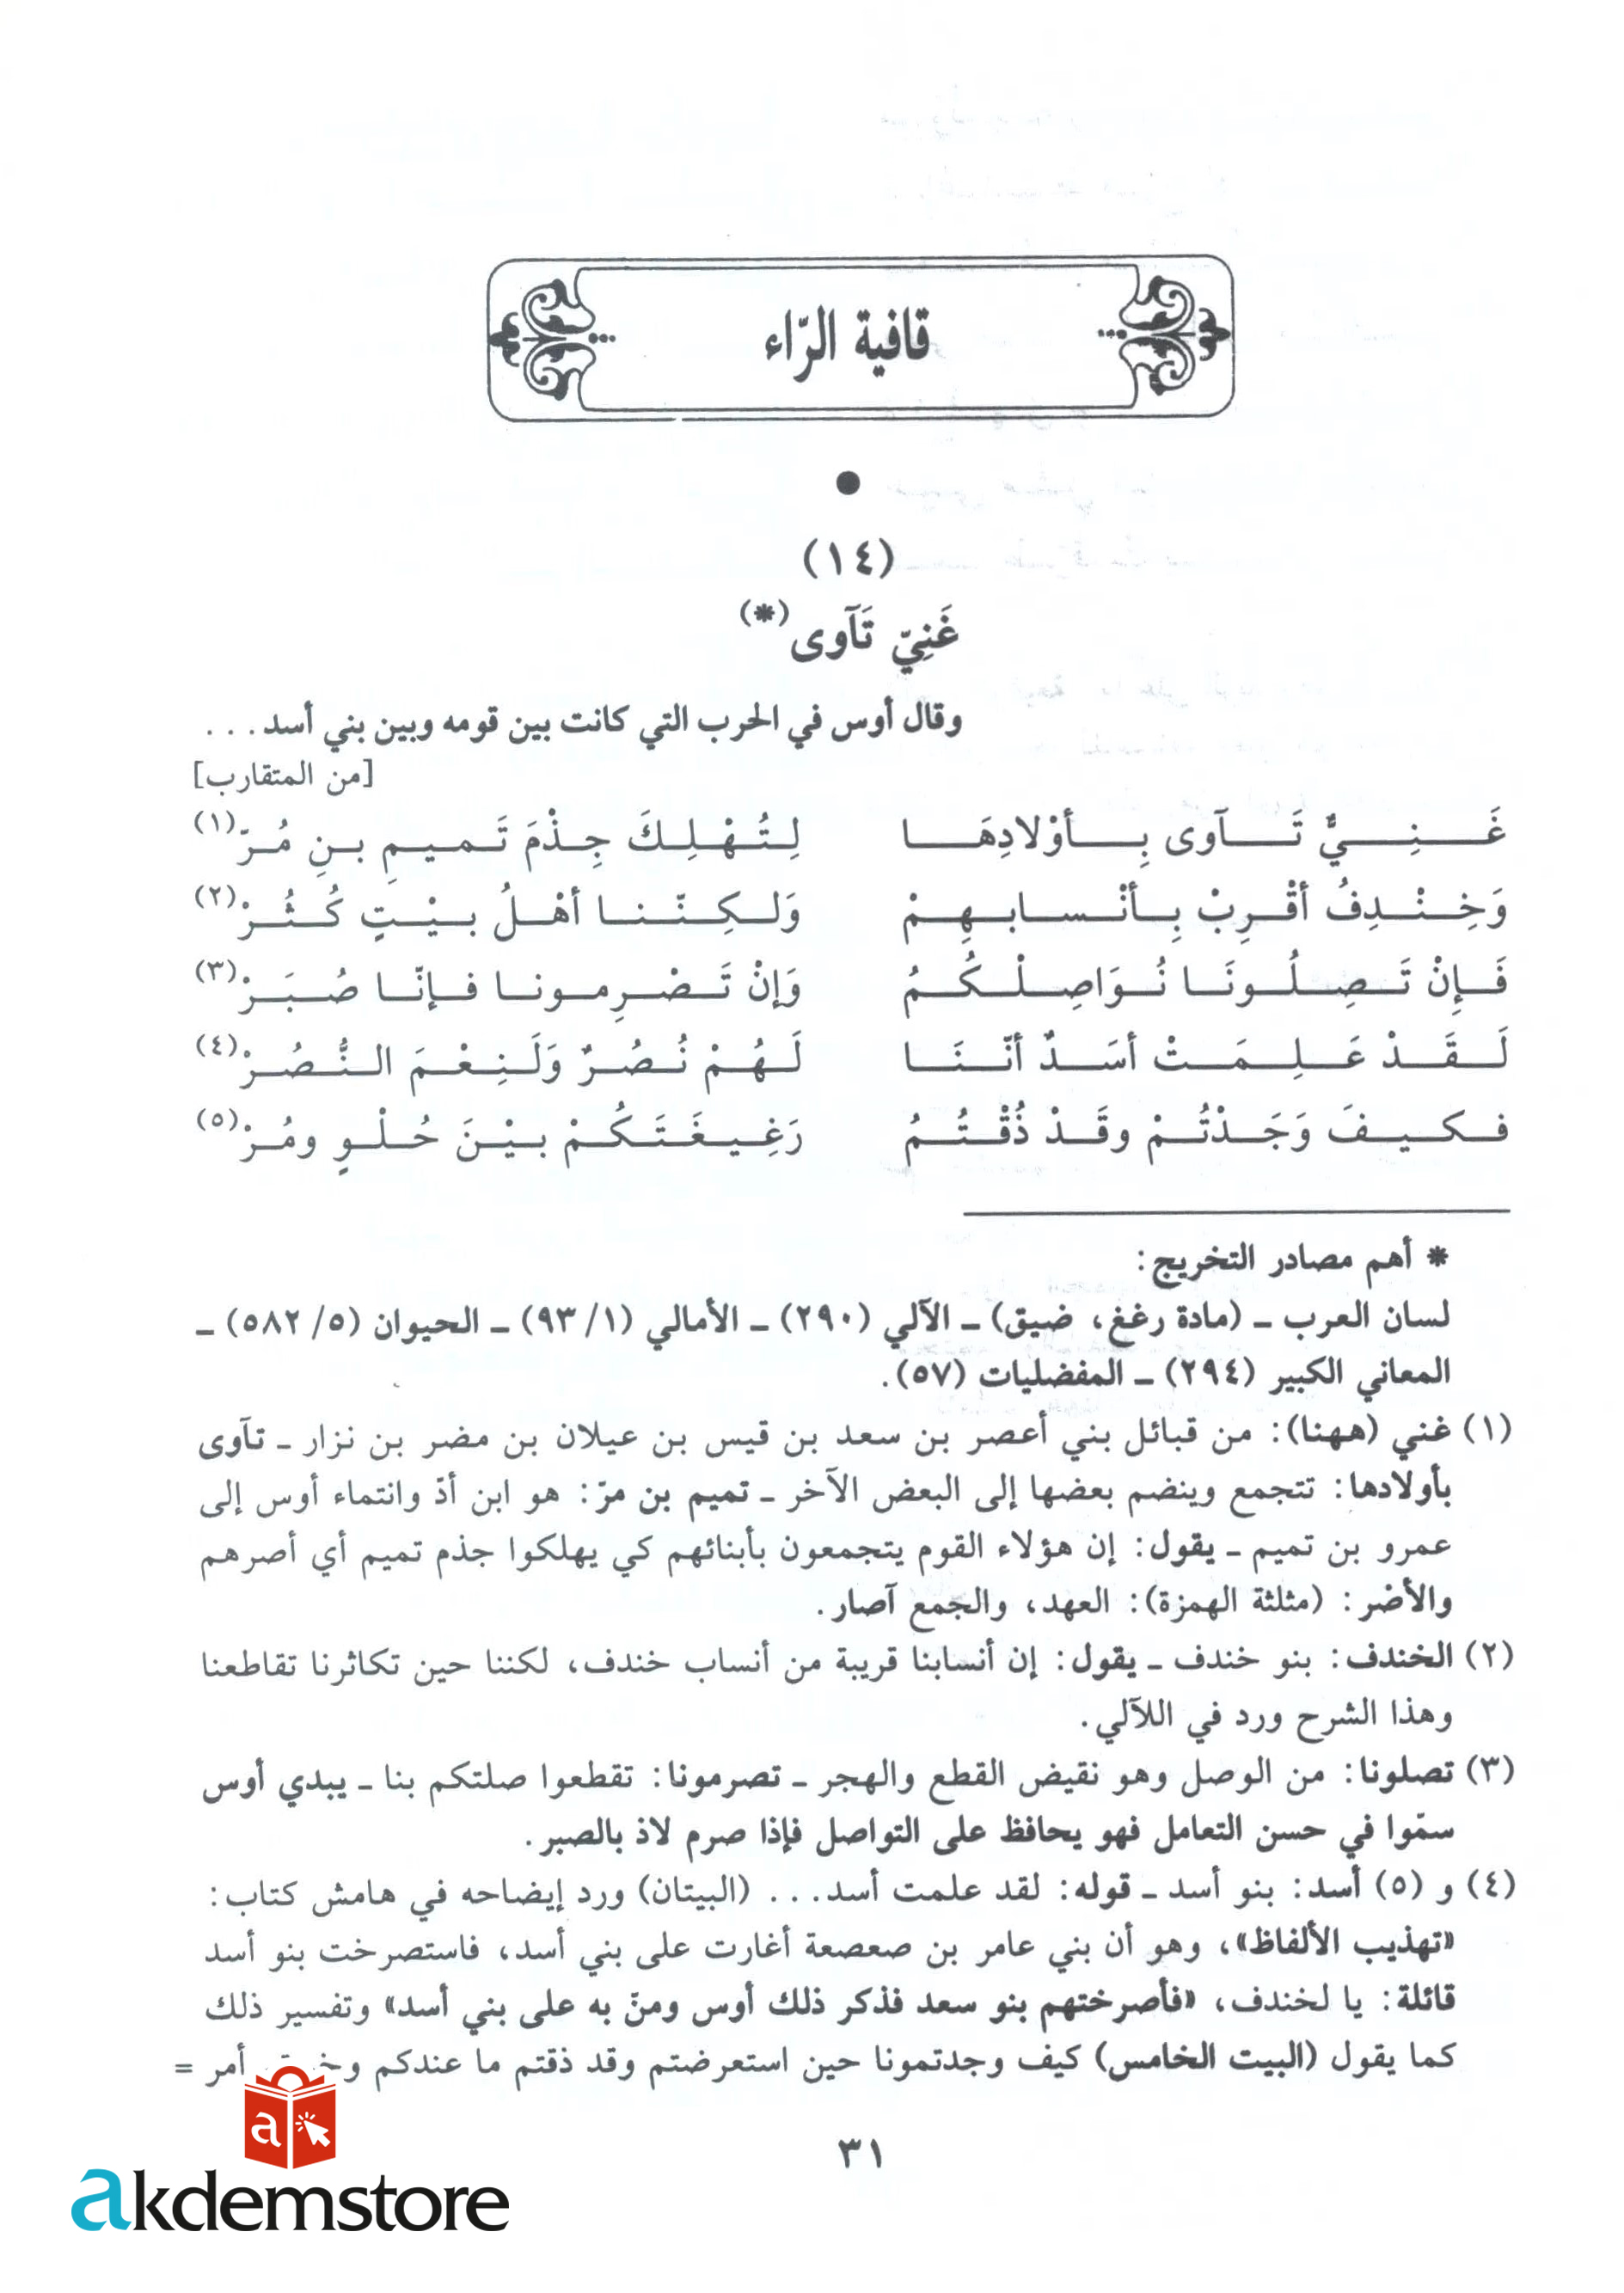 قافية الرّاء
(١٤)
غَنِيّ تَآوى(*)
وقال أوس في الحرب التي كانت بين قومه وبين بني أسد...
[من المتقارب]
غَنِيٌّ تَآوى بِأوْلادِهَا لِتُهْلِكَ جِذْمَ تَميمِ بنِ مُرّ(١)
وَخِنْدِفُ أقْرِبْ بِأنْسابهِمْ وَلكِنّنا أهْلُ بيْتٍ كُثُرْ(٢)
فَإنْ تَصِلُونَا نُوَاصِلْكُمُ وَإنْ تَصْرِمونا فإنّا صُبَرْ(٣)
لَقَدْ عَلِمَتْ أسَدٌ أنّنَا لَهُمْ نُصُرٌ وَلَنِعْمَ النُّصُرْ(٤)
فكيفَ وَجَدْتُمْ وقَدْ ذُقْتُمُ رَغِيغَتَكُمْ بيْنَ حُلْوٍ ومُرْ(٥)
* أهم مصادر التخريج:
لسان العرب ـ (مادة رغغ، ضيق) ـ الآلي (٢٩٠) ـ الأمالي (٩٣/١) ـ الحيوان (٥٨٢/٥) ـ
المعاني الكبير (٢٩٤) ـ المفضليات (٥٧).
(١) غني (ههنا): من قبائل بني أعصر بن سعد بن قيس بن عيلان بن مضر بن نزار ـ تآوى
بأولادها: تتجمع وينضم بعضها إلى البعض الآخر ـ تميم بن مرّ: هو ابن أدّ وانتماء أوس إلى
عمرو بن تميم ـ يقول: إن هؤلاء القوم يتجمعون بأبنائهم كي يهلكوا جذم تميم أي أصرهم
والأضر: (مثلثة الهمزة): العهد، والجمع آصار.
(٢) الخندف: بنو خندف ـ يقول: إن أنسابنا قريبة من أنساب خندف، لكننا حين تكاثرنا تقاطعنا
وهذا الشرح ورد في اللآلي.
(٣) تصلونا: من الوصل وهو نقيض القطع والهجر ـ تصرمونا: تقطعوا صلتكم بنا ـ يبدي أوس
سمّوا في حسن التعامل فهو يحافظ على التواصل فإذا صرم لاذ بالصبر.
(٤) و (٥) أسد: بنو أسد ـ قوله: لقد علمت أسد... (البيتان) ورد إيضاحه في هامش كتاب:
«تهذيب الألفاظ»، وهو أن بني عامر بن صعصعة أغارت على بني أسد، فاستصرخت بنو أسد
قائلة: يا لخندف، «فأصرختهم بنو سعد فذكر ذلك أوس ومنّ به على بني أسد» وتفسير ذلك
كما يقول (البيت الخامس) كيف وجدتمونا حين استعرضتم وقد ذقتم ما عندكم أمر =
٣١
akdemstore